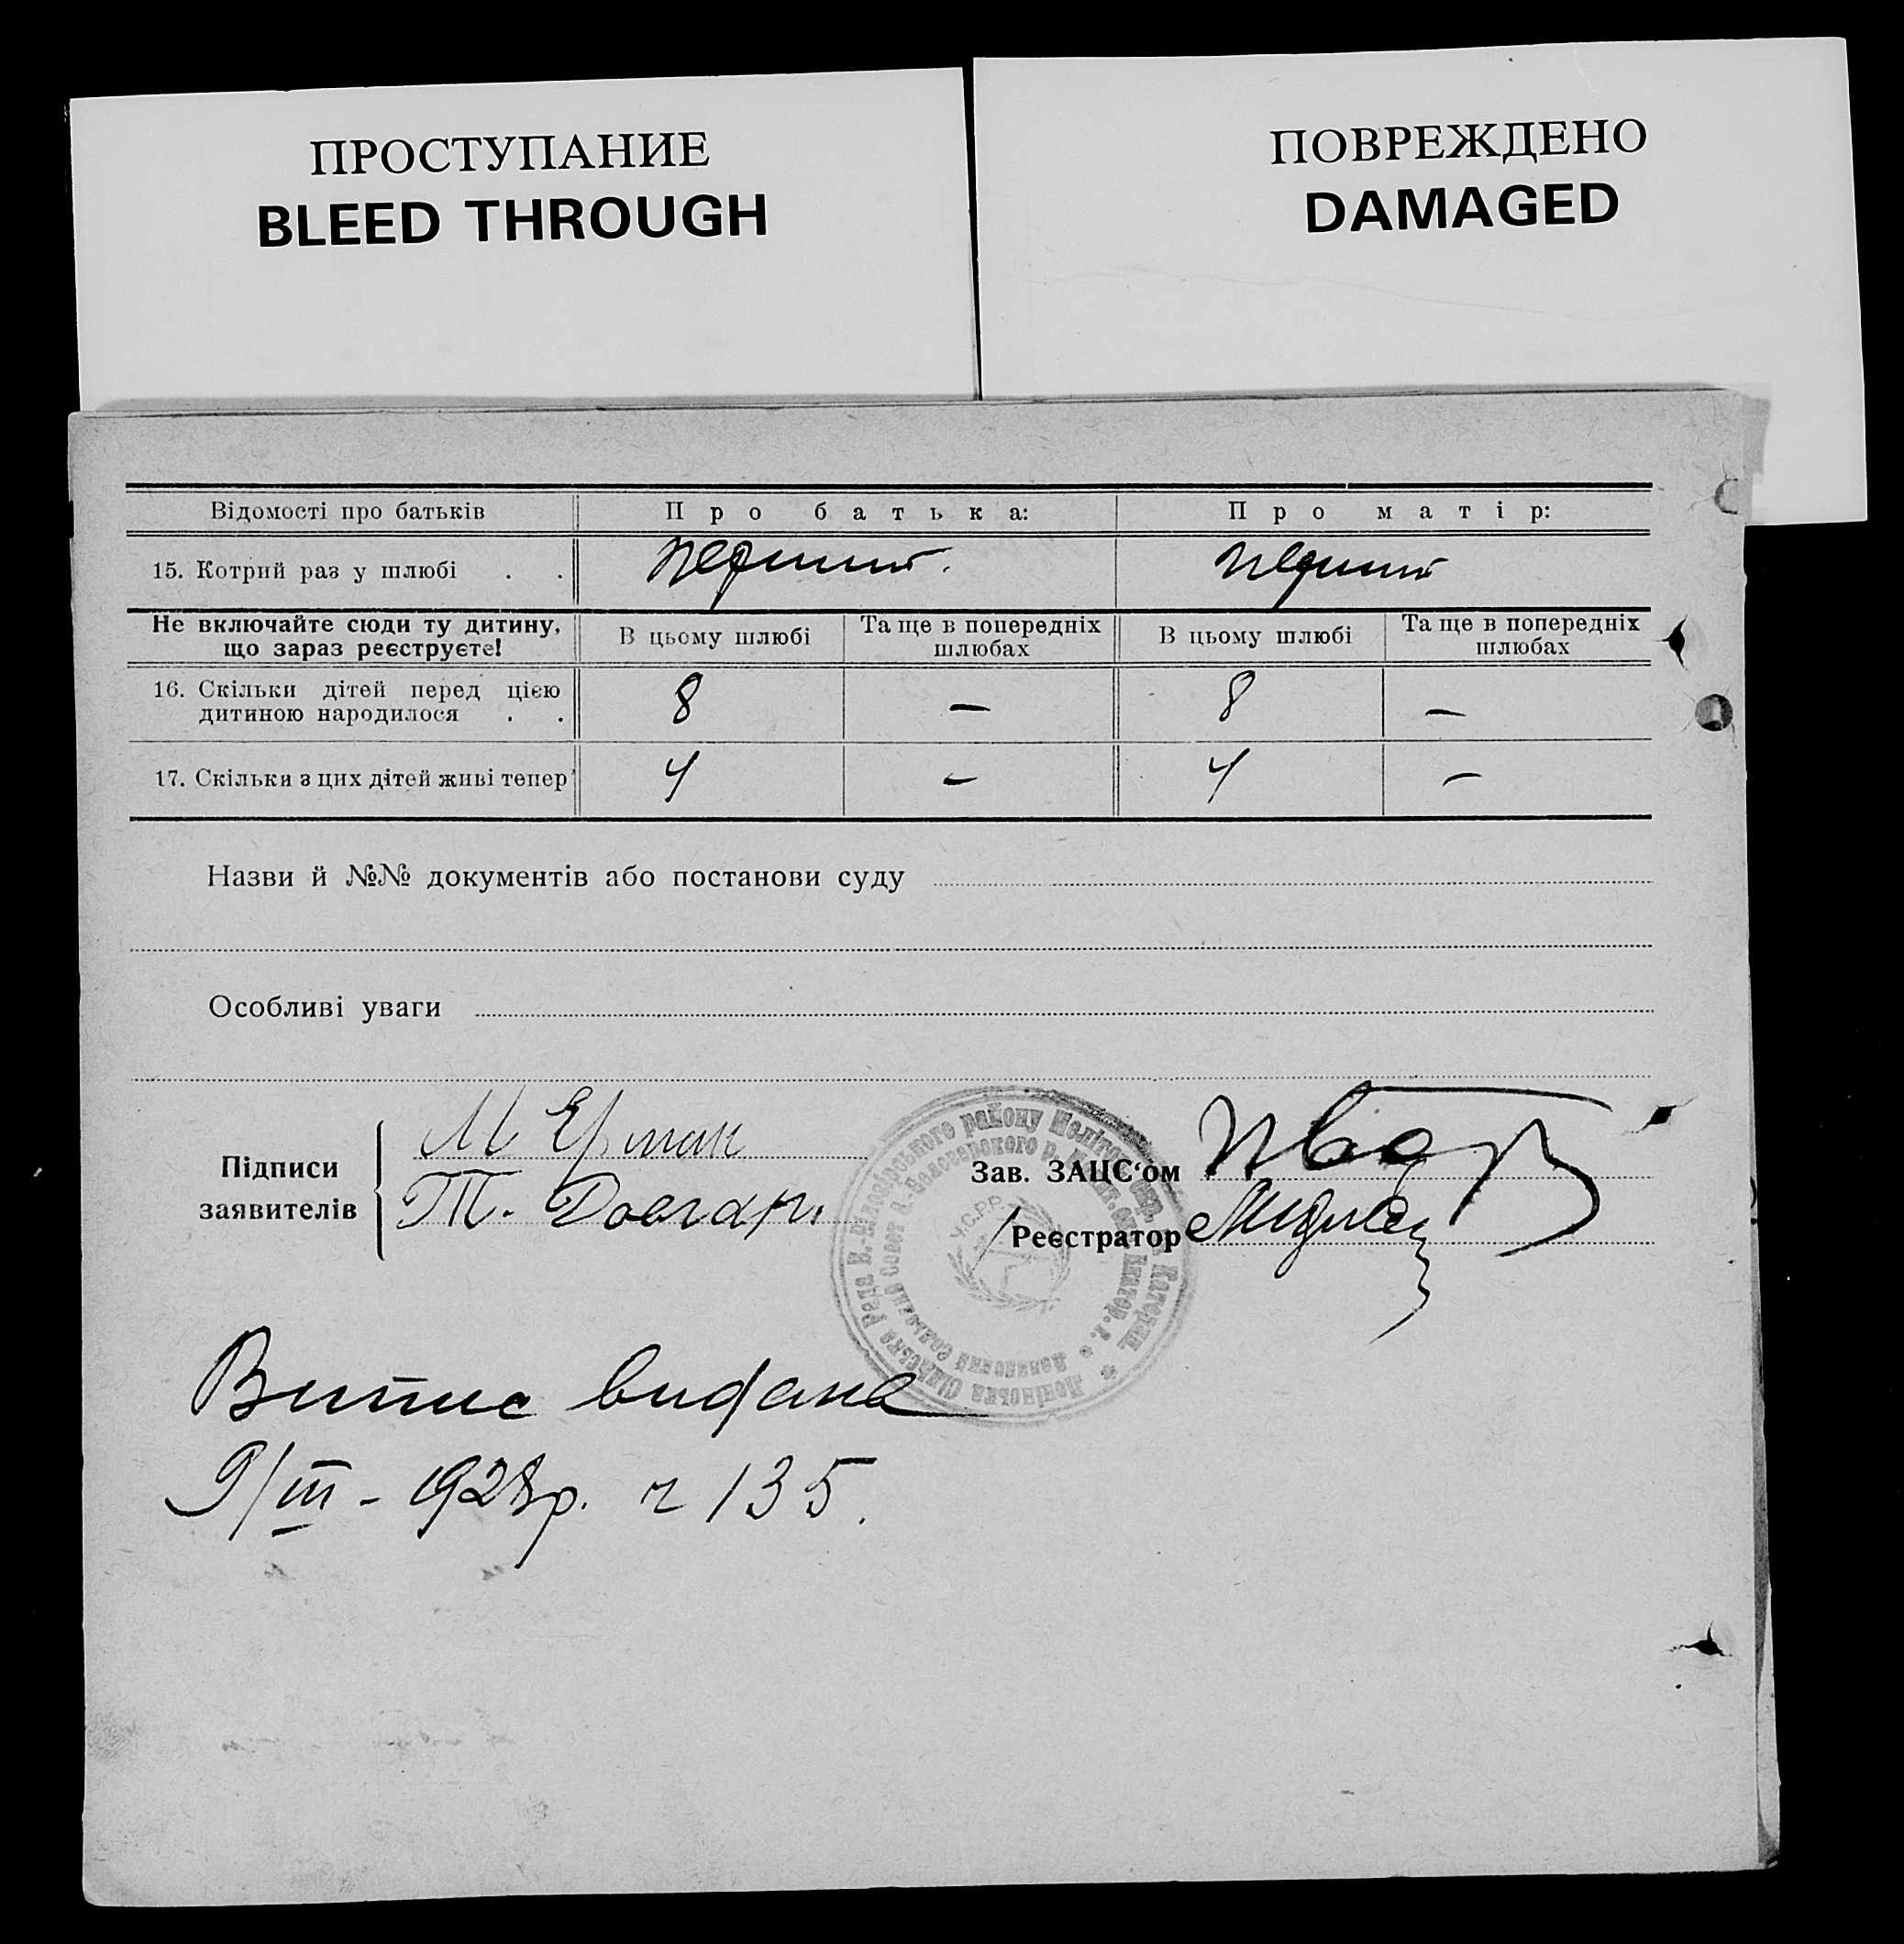 ПРОСТУПАНИЕ
BLEED THROUGH
ПОВРЕЖДЕНО
DAMAGED
Відомості про батьків Про батька: Про матір:
15. Котрий раз у шлюбі . . перший. перший
Не включайте сюди ту дитину, що зараз реєструєте! В цьому шлюбі Та ще в попередніх шлюбах В цьому шлюбі Та ще в попередніх шлюбах
16. Скільки дітей перед цією
дитиною народилося . . 8 — 8 —
17. Скільки з цих дітей живі тепер 4 — 4 —
Назви й №№ документів або постанови суду
Особливі уваги
Підписи
заявителів
М Ерман
Т. Довгар.
Зав. ЗАЦС‘ом
Реєстратор
У.С.Р.Р.
району
Випис видана
9/III - 1928р. ч 135.